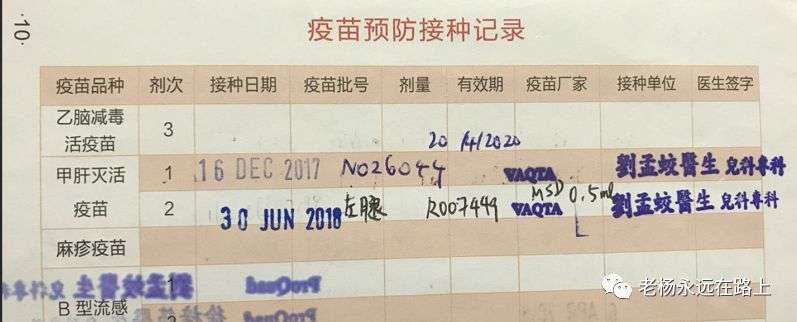 ·10·
疫苗预防接种记录
疫苗品种 剂次 接种日期 疫苗批号 剂量 有效期 疫苗厂家 接种单位 医生签字
乙脑减毒
活疫苗 3
20/4/2020
甲肝灭活 1 16 DEC 2017 N026044 VAQTA 劉孟蛟醫生 兒科專科
疫苗 2 30 JUN 2018 左腿 R007449 VAQTA MSD 0.5ml 劉孟蛟醫生 兒科專科
麻疹疫苗
1 ProQuad 劉孟蛟醫生 兒科專科
B型流感
老杨永远在路上